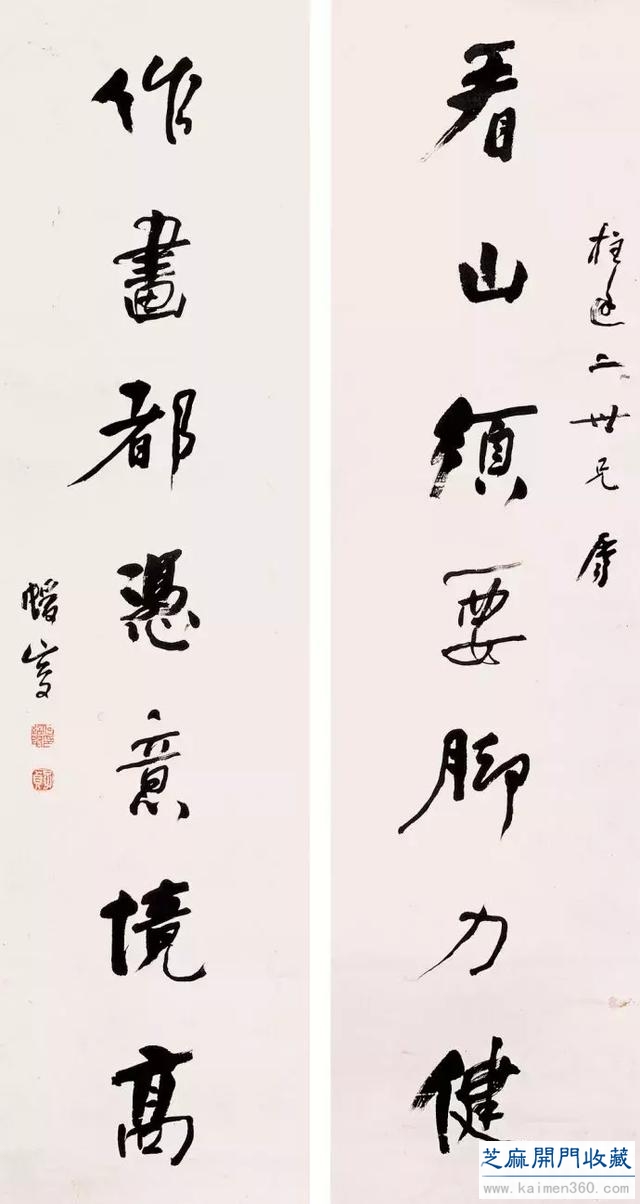 二世兄屬
看山須要脚力健
作畫都憑意境高
蝯叟
芝麻開門收藏
www.kaimen360.com